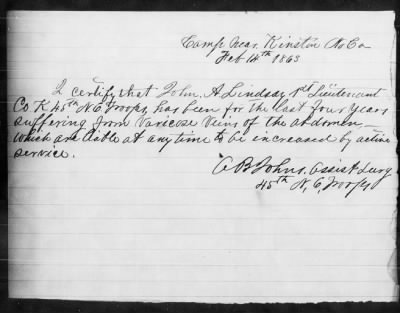 Camp near Kinston No Ca
Feb 14th 1863
I certify that John. A Lindsay 1st Lieutenant
Co K 45th N.C. Troops, has been for the last four years
suffering from Varicose Veins of the abdomen,
which are liable at any time to be increased by active
service.
A B Johns, Assist Surg
45th N, C, Troops